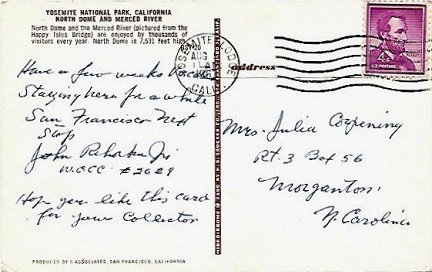 YOSEMITE NATIONAL PARK, CALIFORNIA
NORTH DOME AND MERCED RIVER
North Dome and the Merced River (pictured from the
Happy Isles Bridge) are enjoyed by thousands of
visitors every year. North Dome is 7,531 feet high.
Have a few weeks
Staying here for a while
San Francisco next
Stop
John
W.O.C.C. #2029
Hope you like this card
for your Collector
PRODUCED BY S ASSOCIATES, SAN FRANCISCO, CALIFORNIA
YOSEMITE LODGE
AUG
CALIF.
address
4¢
U.S. POSTAGE
Mrs. Julia Corpening
Rt. 3 Box 56
Morganton
N. Carolina